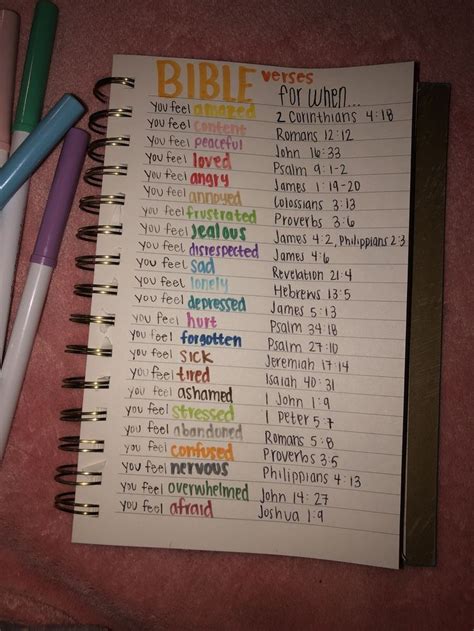 BIBLE verses for when...
you feel amazed 2 Corinthians 4:18
you feel content Romans 12:12
you feel peaceful John 16:33
you feel loved Psalm 9:1-2
you feel angry James 1:19-20
you feel annoyed Colossians 3:13
you feel frustrated Proverbs 3:6
you feel jealous James 4:2, Philippians 2:3
you feel disrespected James 4:6
you feel sad Revelation 21:4
you feel lonely Hebrews 13:5
you feel depressed James 5:13
you feel hurt Psalm 34:18
you feel forgotten Psalm 27:10
you feel sick Jeremiah 17:14
you feel tired Isaiah 40:31
you feel ashamed 1 John 1:9
you feel stressed 1 Peter 5:7
you feel abandoned Romans 5:8
you feel confused Proverbs 3:5
you feel nervous Philippians 4:13
you feel overwhelmed John 14:27
you feel afraid Joshua 1:9